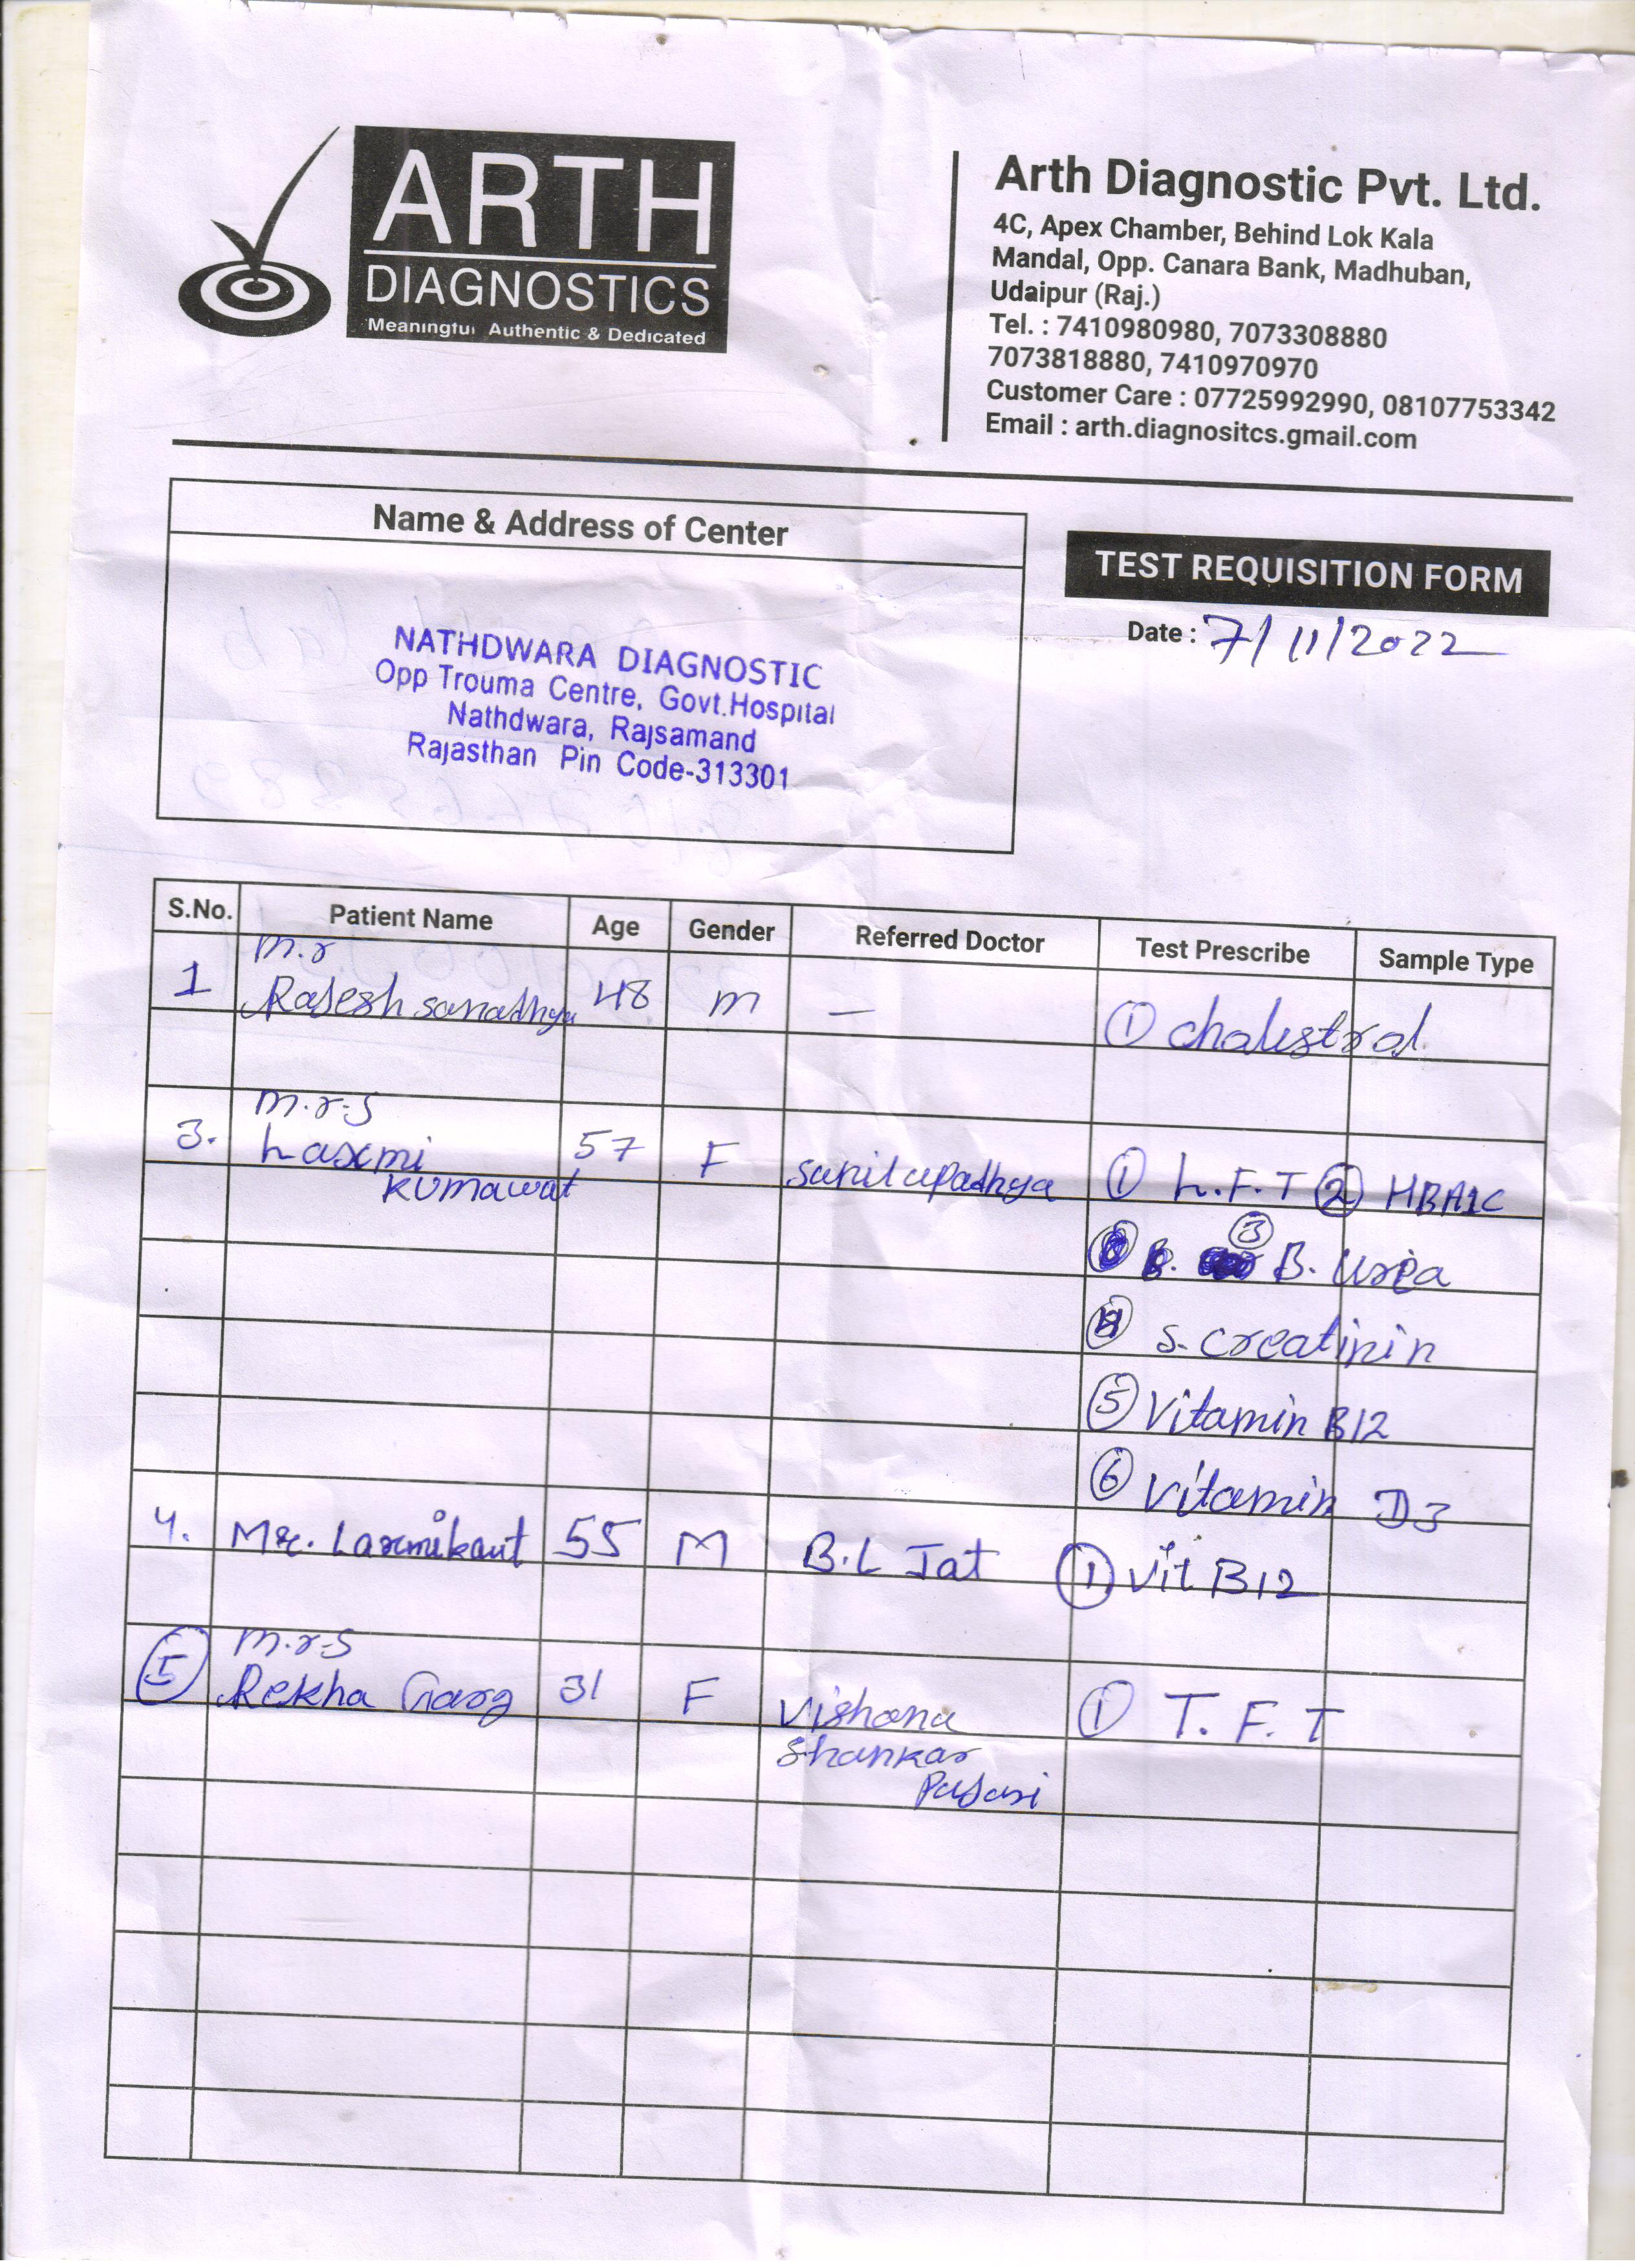 ARTH
DIAGNOSTICS
Meaningful Authentic & Dedicated
Arth Diagnostic Pvt. Ltd.
4C, Apex Chamber, Behind Lok Kala
Mandal, Opp. Canara Bank, Madhuban,
Udaipur (Raj.)
Tel. : 7410980980, 7073308880
7073818880, 7410970970
Customer Care : 07725992990, 08107753342
Email : arth.diagnositcs.gmail.com
Name & Address of Center
NATHDWARA DIAGNOSTIC
Opp Trouma Centre, Govt.Hospital
Nathdwara, Rajsamand
Rajasthan Pin Code-313301
TEST REQUISITION FORM
Date : 7/11/2022
S.No. Patient Name Age Gender Referred Doctor Test Prescribe Sample Type
M.r
1 Rajesh sanadhya 48 m — ① chalestral.
M.r.s
3. Laxmi 57 F sunil upadhya ① L.F.T ② HBA1C
kumawat
③ B. Urea
④ S. creatinin
⑤ Vitamin B12
⑥ Vitamin D3
4. Mr. Laxmikant 55 M B.L Jat ① Vit B12
M.r.s
⑤ Rekha Garg 31 F Vishana ① T. F. T
Shankar
Pujari